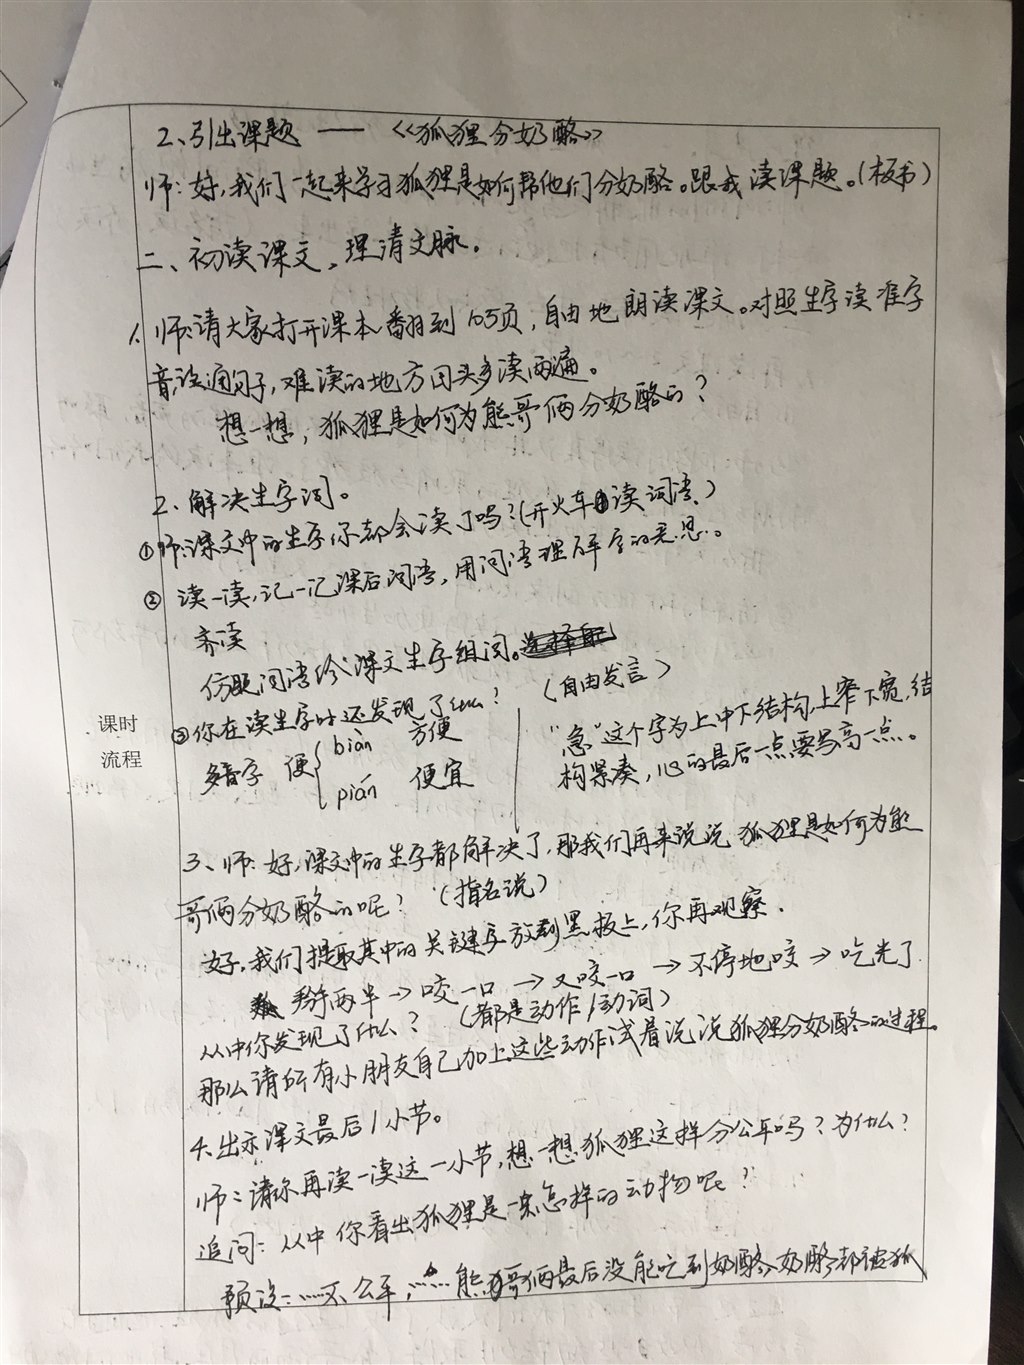 2、引出课题 —— 《狐狸分奶酪》
师:好,我们一起来学习狐狸是如何帮他们分奶酪。跟我读课题。(板书)
二、初读课文,理清文脉。
1、师:请大家打开课本翻到105页,自由地朗读课文。对照生字读准字
音,读通句子,难读的地方回头多读两遍。
想一想,狐狸是如何为熊哥俩分奶酪的?
2、解决生字词。
①师:课文中的生字你都会读了吗?(开火车读词语)
② 读一读,记一记课后词语,用词语理解字的意思。
齐读
仿照词语给课文生字组词。
(自由发言)
③你在读生字时还发现了什么?
多音字 便 biàn 方便
pián 便宜
“急”这个字为上中下结构,上窄下宽,结
构紧凑,心的最后一点要写高一点。
课时
流程
3、师:好,课文中的生字都解决了,那我们再来说说狐狸是如何为熊
哥俩分奶酪的呢?(指名说)
好,我们提取其中的关键字放到黑板上,你再观察.
掰两半→咬一口→又咬一口→不停地咬→吃光了
从中你发现了什么?(都是动作/动词)
那么请所有小朋友自己加上这些动作试着说说狐狸分奶酪的过程。
4、出示课文最后1小节。
师:请你再读一读这一小节,想一想狐狸这样分公平吗?为什么?
追问:从中你看出狐狸是一只怎样的动物呢?
预设:……不公平,……熊哥俩最后没能吃到奶酪,奶酪都被狐